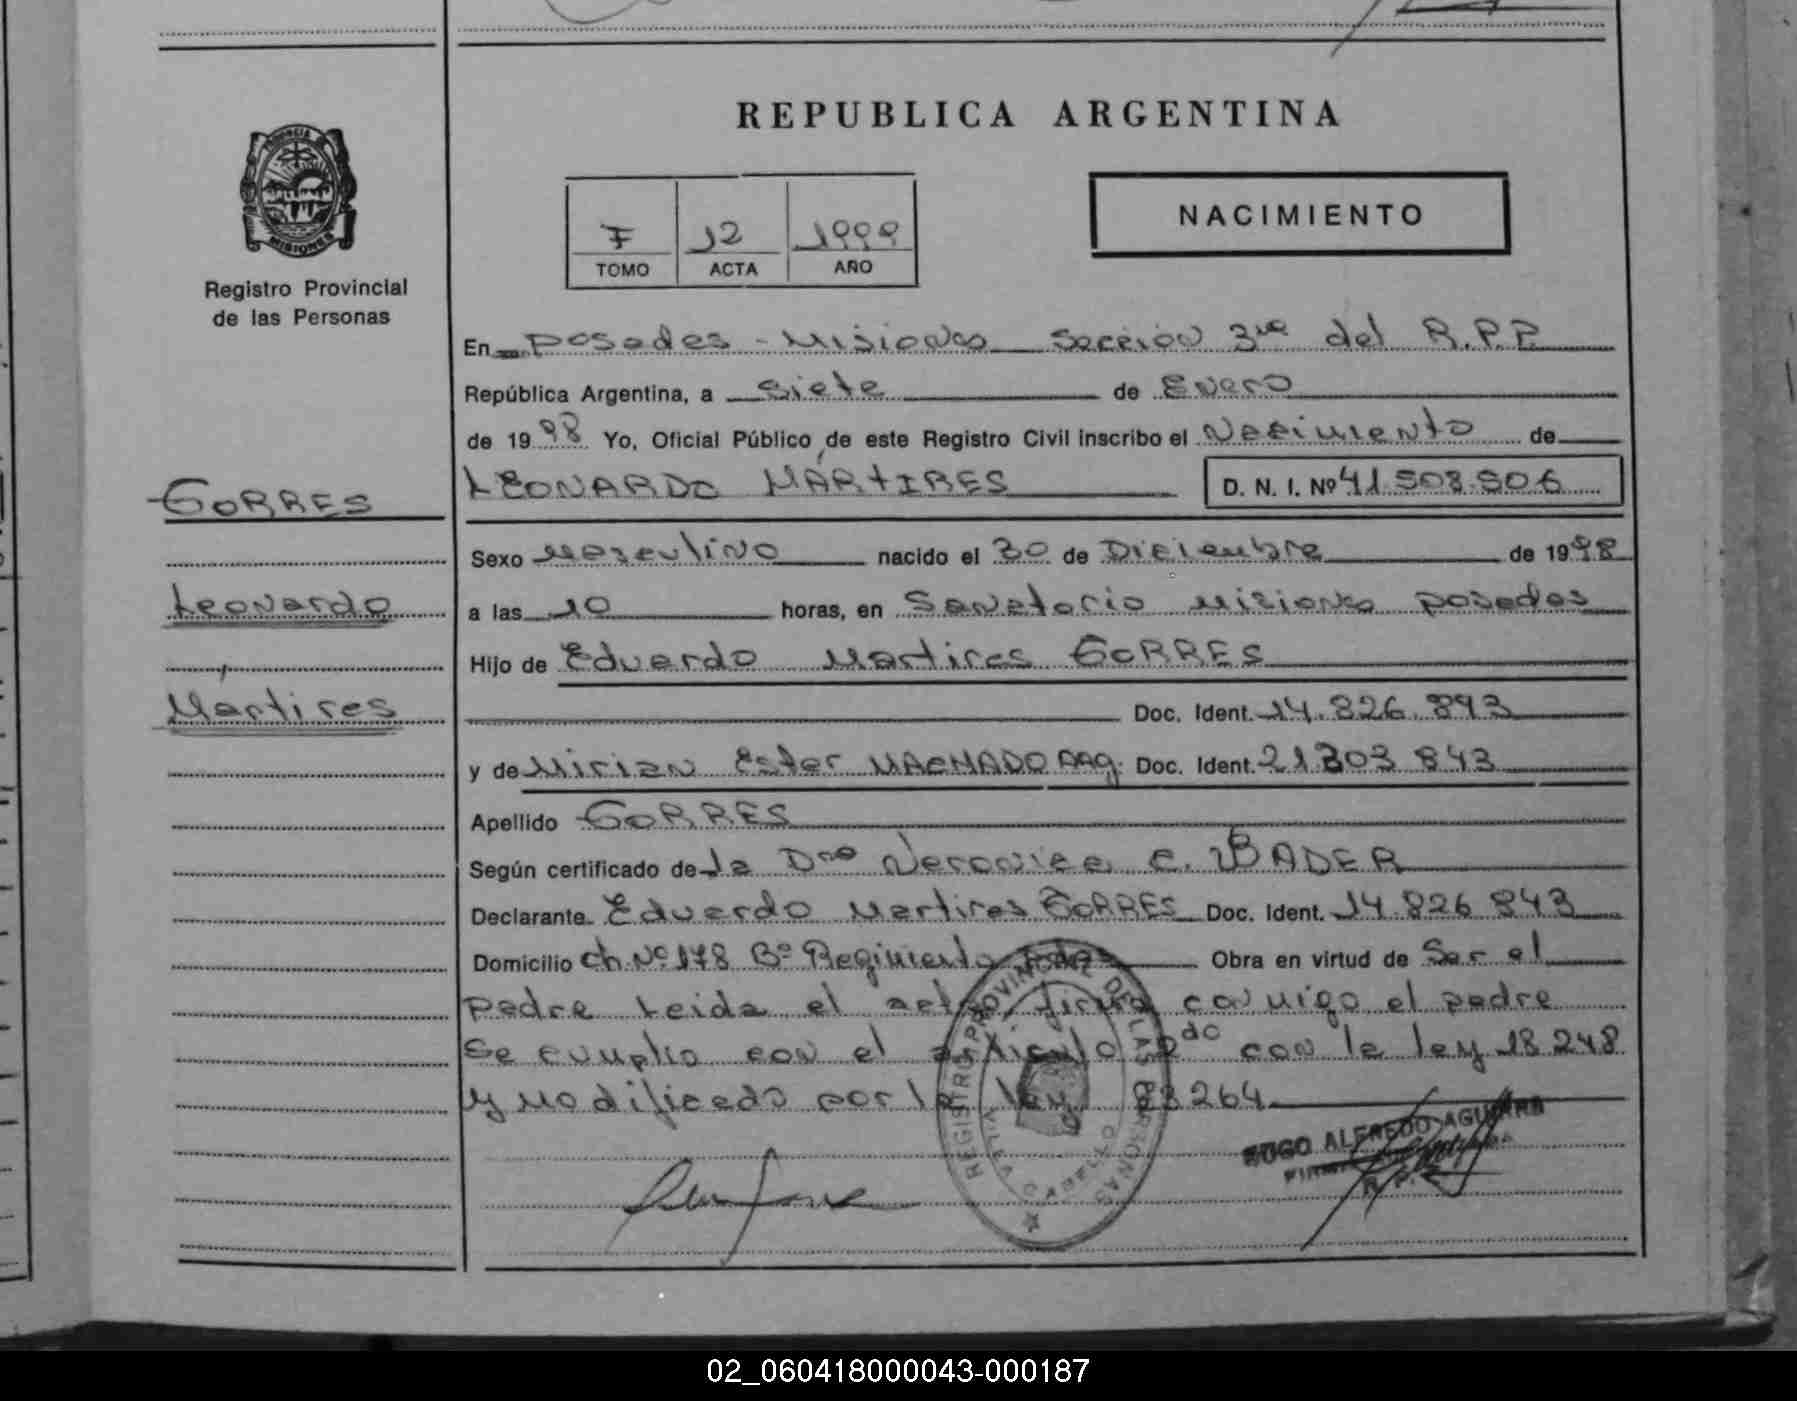 REPUBLICA ARGENTINA
PROVINCIA
MISIONES
Registro Provincial
de las Personas
F 12 1999
TOMO ACTA AÑO
NACIMIENTO
En Posadas - Misiones Sección 3ra del R.P.P.
República Argentina, a siete de Enero
de 1998 Yo, Oficial Público de este Registro Civil inscribo el Nacimiento de
LEONARDO MÁRTIRES D. N. I. Nº 41.508.506
GORRES
Leonardo
Mártires
Sexo masculino nacido el 30 de Diciembre de 1998
a las 10 horas, en Sanatorio Misiones posadas
Hijo de Eduardo Martires GORRES
Doc. Ident. 14.826.843
y de Mirian Ester MACHADO Arg. Doc. Ident. 21303 843
Apellido GORRES
Según certificado de la Dra Veronica C. BADER
Declarante Eduardo Martires GORRES Doc. Ident. 14.826 843
Domicilio ch. Nº 178 Bº Regimiento Pdas Obra en virtud de Ser el
padre Leida el acta firma conmigo el padre
se cumplio con el articulo 2do con la ley 18.248
y modificado por la ley 23264
REGISTRO PROVINCIAL DE LAS PERSONAS
VILLA CABELLO
HUGO ALFREDO AGUIRRE
R.P.P.
02_060418000043-000187